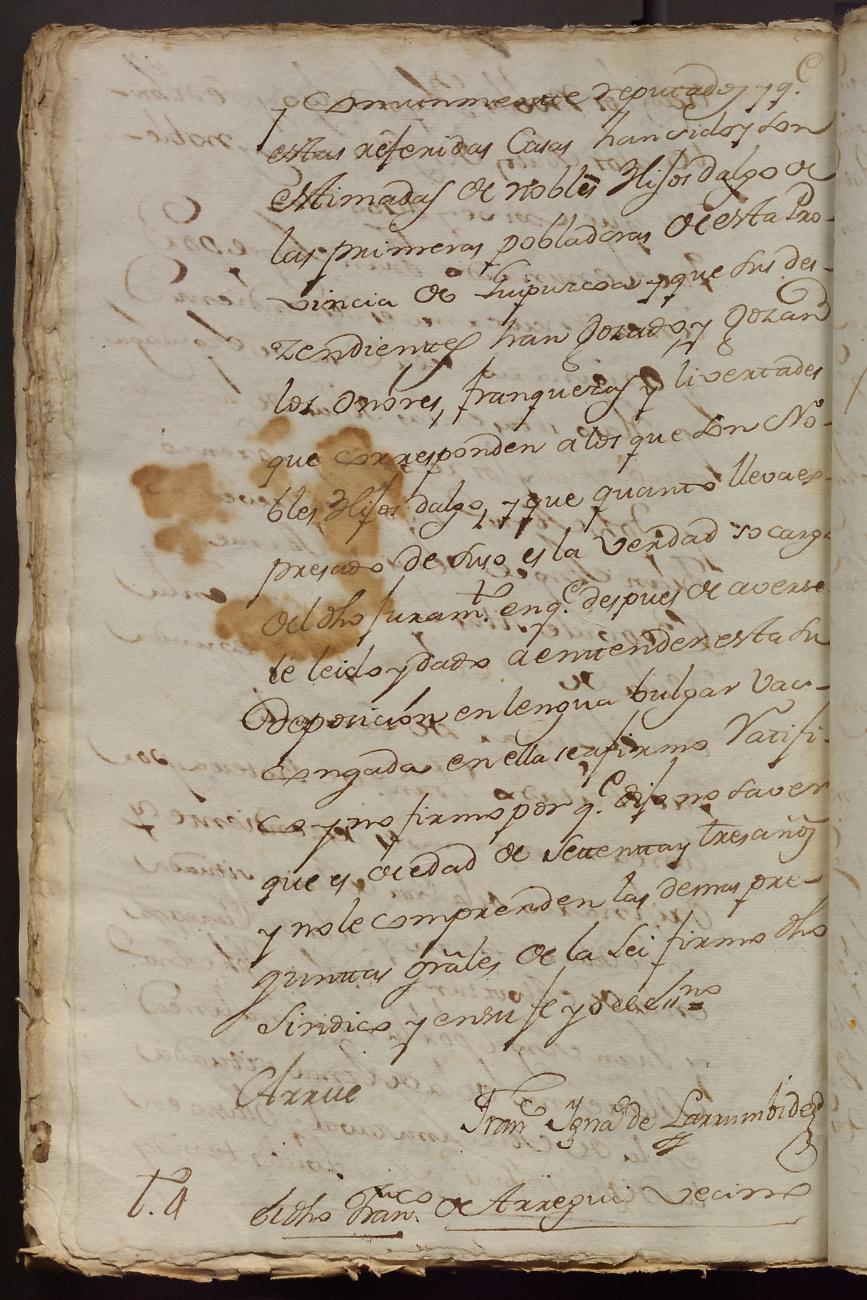 y Comunmente reputados y q.e
estas referidas Casas han sido y son
estimadas de nobles Hijos dalgo de
las primeras pobladoras de esta Pro-
vincia de Guipuzcoa y que sus des-
zendientes han Gozado, y Gozan
los onores, franquezas y livertades
que corresponden a los que son No-
bles Hijos dalgo, y que quanto lleva es-
presado de suso es la verdad so cargo
del dho Juram.to en q.e despues de averse
le leido y dado a entender esta su
Deposición en lengua bulgar vas-
congada en ella se afirmo Ratifi-
co y no firmo por q.e dijo no saver
que es de edad de Settenta y tres años
y no le comprenden las demas pre-
guntas grāles de la Lei firmo dho
Sindico y en su fe yo el ess.no =
Arrue
Fran.co Igna.o de Larrumbide
t. 4
El dho Fran.co de Arregui vecino